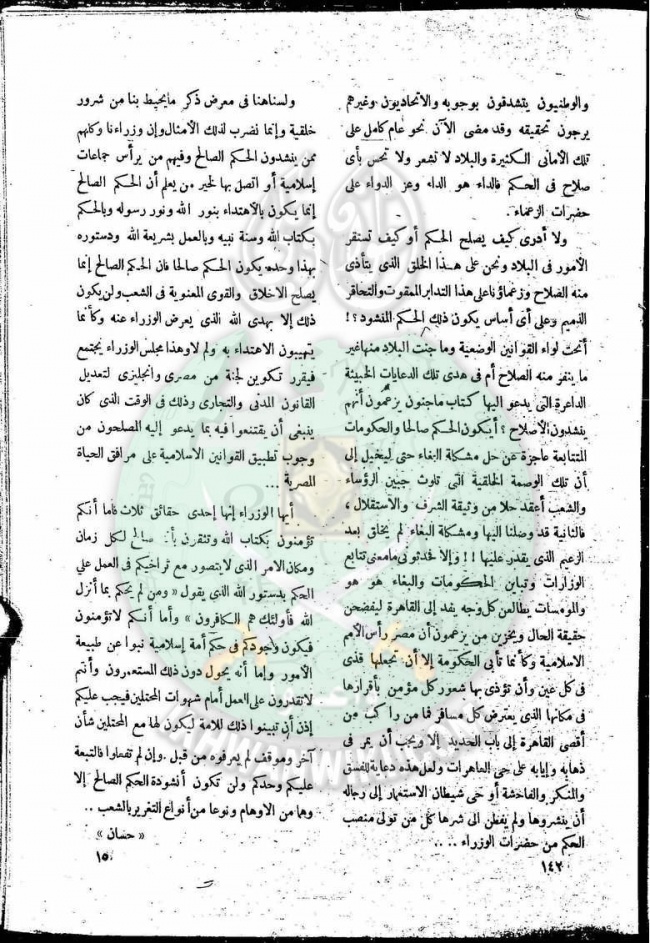 والوطنيون يتشدقون بوجوبه والاتحاديون وغيرهم
يرجون تحقيقه وقد مضى الآن نحو عام كامل على
تلك الأمانى الكثيرة والبلاد لا تشعر ولا تحس بأى
صلاح فى الحكم فالداء هو الداء وعز الدواء على
حضرات الزعماء .
ولا أدرى كيف يصلح الحكم أو كيف تستقر
الأمور فى البلاد ونحن على هذا الخلق الذى يتأذى
منه الصلاح وزعماؤنا على هذا التدابر الممقوت والتحاقر
الذميم وعلى أى أساس يكون ذلك الحكم المنشود ؟!
أتحت لواء القوانين الوضعية وما جنت البلاد منها غير
ما ينفر منه الصلاح أم فى هدى تلك الدعايات الخبيثة
الداعرة التى يدعو اليها كتاب ماجنون يزعمون أنهم
ينشدون الأصلاح ؟ أيكون الحكم صالحا والحكومات
المتتابعة عاجزة عن حل مشكلة البغاء حتى ليخيل إلى
أن تلك الوصمة الخلقية التى تلوث جبين الرؤساء
والشعب أعقد حلا من وثيقة الشرف والاستقلال ،
فالثانية قد وصلنا اليها ومشكلة البغاء لم يخلق بعد
الزعيم الذى يقدر عليها !! وإلا فحدثونى ما معنى تتابع
الوزارات وتباين الحكومات والبغاء هو هو
والمومسات يطالعن كل وجه يفد إلى القاهرة ليفضحن
حقيقة الحال ويخزين من يزعمون أن مصر رأس الأمم
الاسلامية وكأنما تأبى الحكومة إلا أن تجعلها قذى
فى كل عين وأن تؤذى بها شعور كل مؤمن بأقرارها
فى مكانها الذى يعترض كل مسافر فما من راكب من
أقصى القاهرة إلى باب الحديد إلا ويجب أن يمر فى
ذهابه وإيابه على حى العاهرات ولعل هذه دعاية للفسق
والمنكر والفاحشة أو حى شيطان الاستعمار إلى رجاله
أن ينشروها ولم يفطن الى شرها كل من تولى منصب
الحكم من حضرات الوزراء ....
١٤٢
ولسنا هنا فى معرض ذكر ما يحيط بنا من شرور
خلقية وإنما نضرب لذلك الأمثال وإن وزراءنا وكلهم
ممن ينشدون الحكم الصالح وفيهم من يرأس جماعات
إسلامية أو اتصل بها لخير من يعلم أن الحكم الصالح
إنما يكون بالاهتداء بنور الله ونور رسوله وبالحكم
بكتاب الله وسنة نبيه وبالعمل بشريعة الله ودستوره
بهذا وحده يكون الحكم صالحا فان الحكم الصالح إنما
يصلح الاخلاق والقوى المعنوية فى الشعب ولن يكون
ذلك إلا بهدى الله الذى يعرض الوزراء عنه وكأنما
يتهيبون الاهتداء به ولم لا وهذا مجلس الوزراء يجتمع
فيقرر تكوين لجنة من مصرى وانجليزى لتعديل
القانون المدنى والتجارى وذلك فى الوقت الذى كان
ينبغى أن يقتنعوا فيه بما يدعو إليه المصلحون من
وجوب تطبيق القوانين الاسلامية على مرافق الحياة
المصرية ...
أيها الوزراء إنها إحدى حقائق ثلاث فاما أنكم
تؤمنون بكتاب الله وتثقون بأنه صالح لكل زمان
ومكان الامر الذى لا يتصور مع تراخيكم فى العمل على
الحكم بدستور الله الذى يقول « ومن لم يحكم بما أنزل
الله فأولئك هم الكافرون » وأما أنكم لا تؤمنون
فيكون وجودكم فى حكم أمة إسلامية نبوا عن طبيعة
الأمور وإما أنه يحول دون ذلك المستعمرون وأنتم
لا تقدرون على العمل أمام شهوات المحتلين فيجب عليكم
إذن أن تبينوا ذلك للامة ليكون لها مع المحتلين شأن
آخر وموقف لم يعرفوه من قبل . وإن لم تفعلوا فالتبعة
عليكم وحدكم ولن تكون أنشودة الحكم الصالح إلا
وهما من الاوهام ونوعا من أنواع التغرير بالشعب ..
« حسان »
١٥